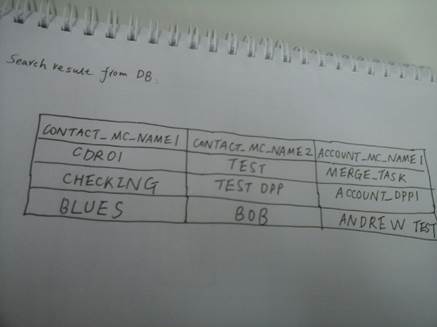 Search result from DB.
CONTACT_MC_NAME1 CONTACT_MC_NAME2 ACCOUNT_MC_NAME1
CDR01 TEST MERGE_TASK
CHECKING TEST DPP ACCOUNT_DPP1
BLUES BOB ANDREW TEST